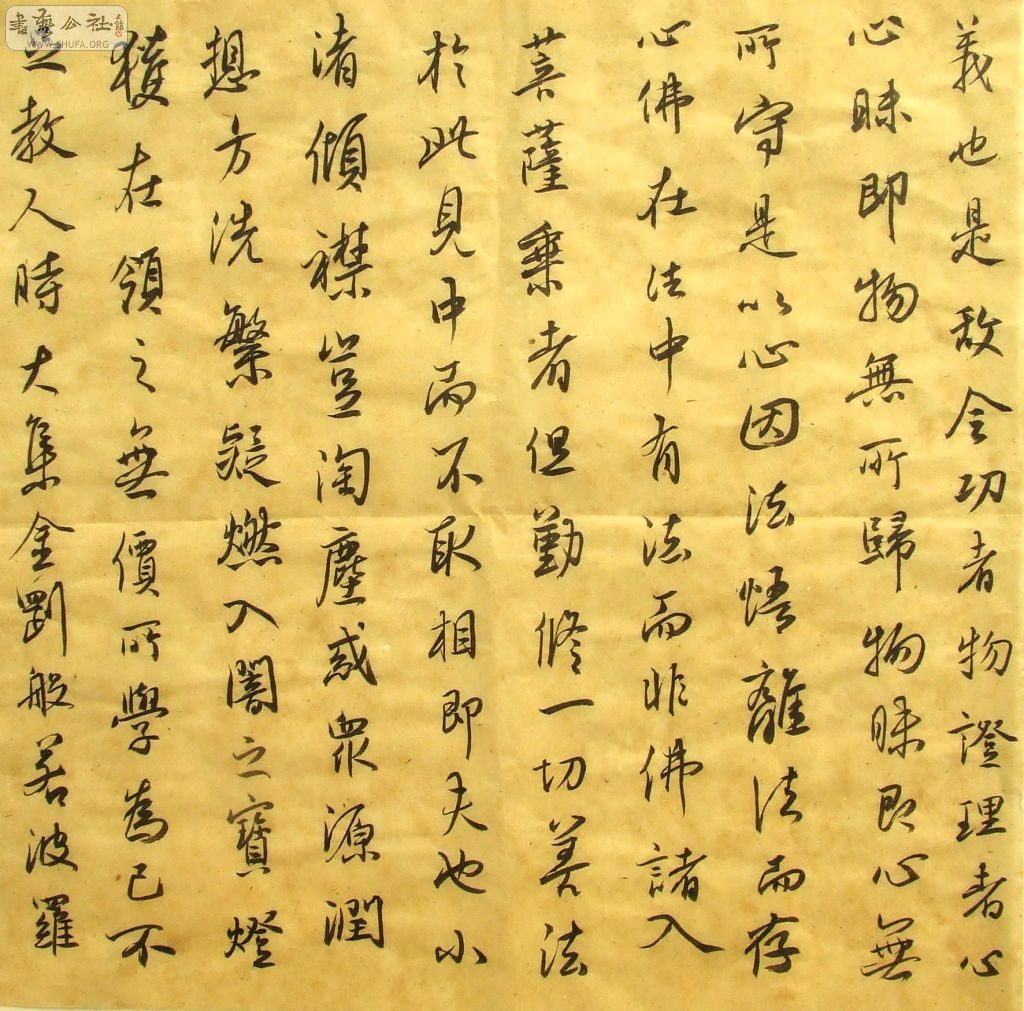 義也是故令功者物證理者心
心昧即物無所歸物昧即心無
所守是以心因法悟離法而存
心佛在法中有法而非佛諸入
菩薩乘者但勤修一切善法
於此見中而不取相即夫也小
渚傾襟豈淘塵惑眾源潤
想方洗繁疑燃入闇之寶燈
獲在領之無價所學為己不
教人時大集金剛般若波羅
書藝公社
WWW.SHUFA.ORG